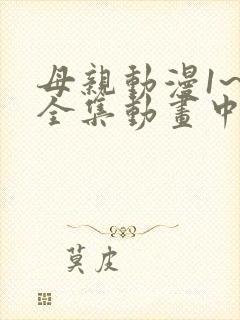 母親動漫1~
全集動畫中
莫皮